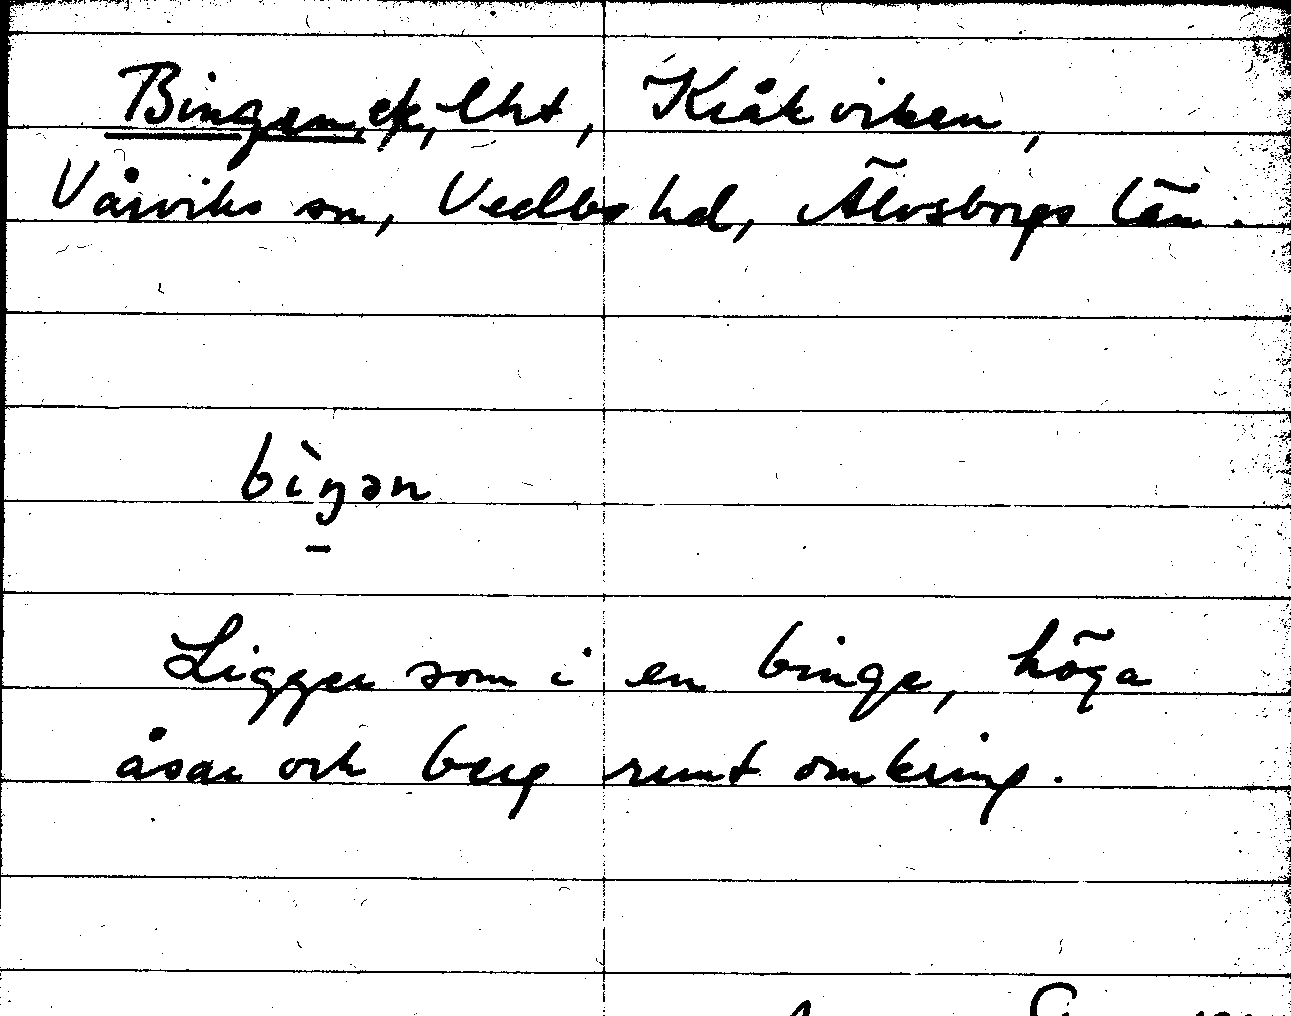 Bingen, ek, lht, Kråkviken,
Vårviks sn, Vedbo hd, Älvsborgs län.
bìŋən
Ligger som i en binge, höga
åsar och berg runt omkring.